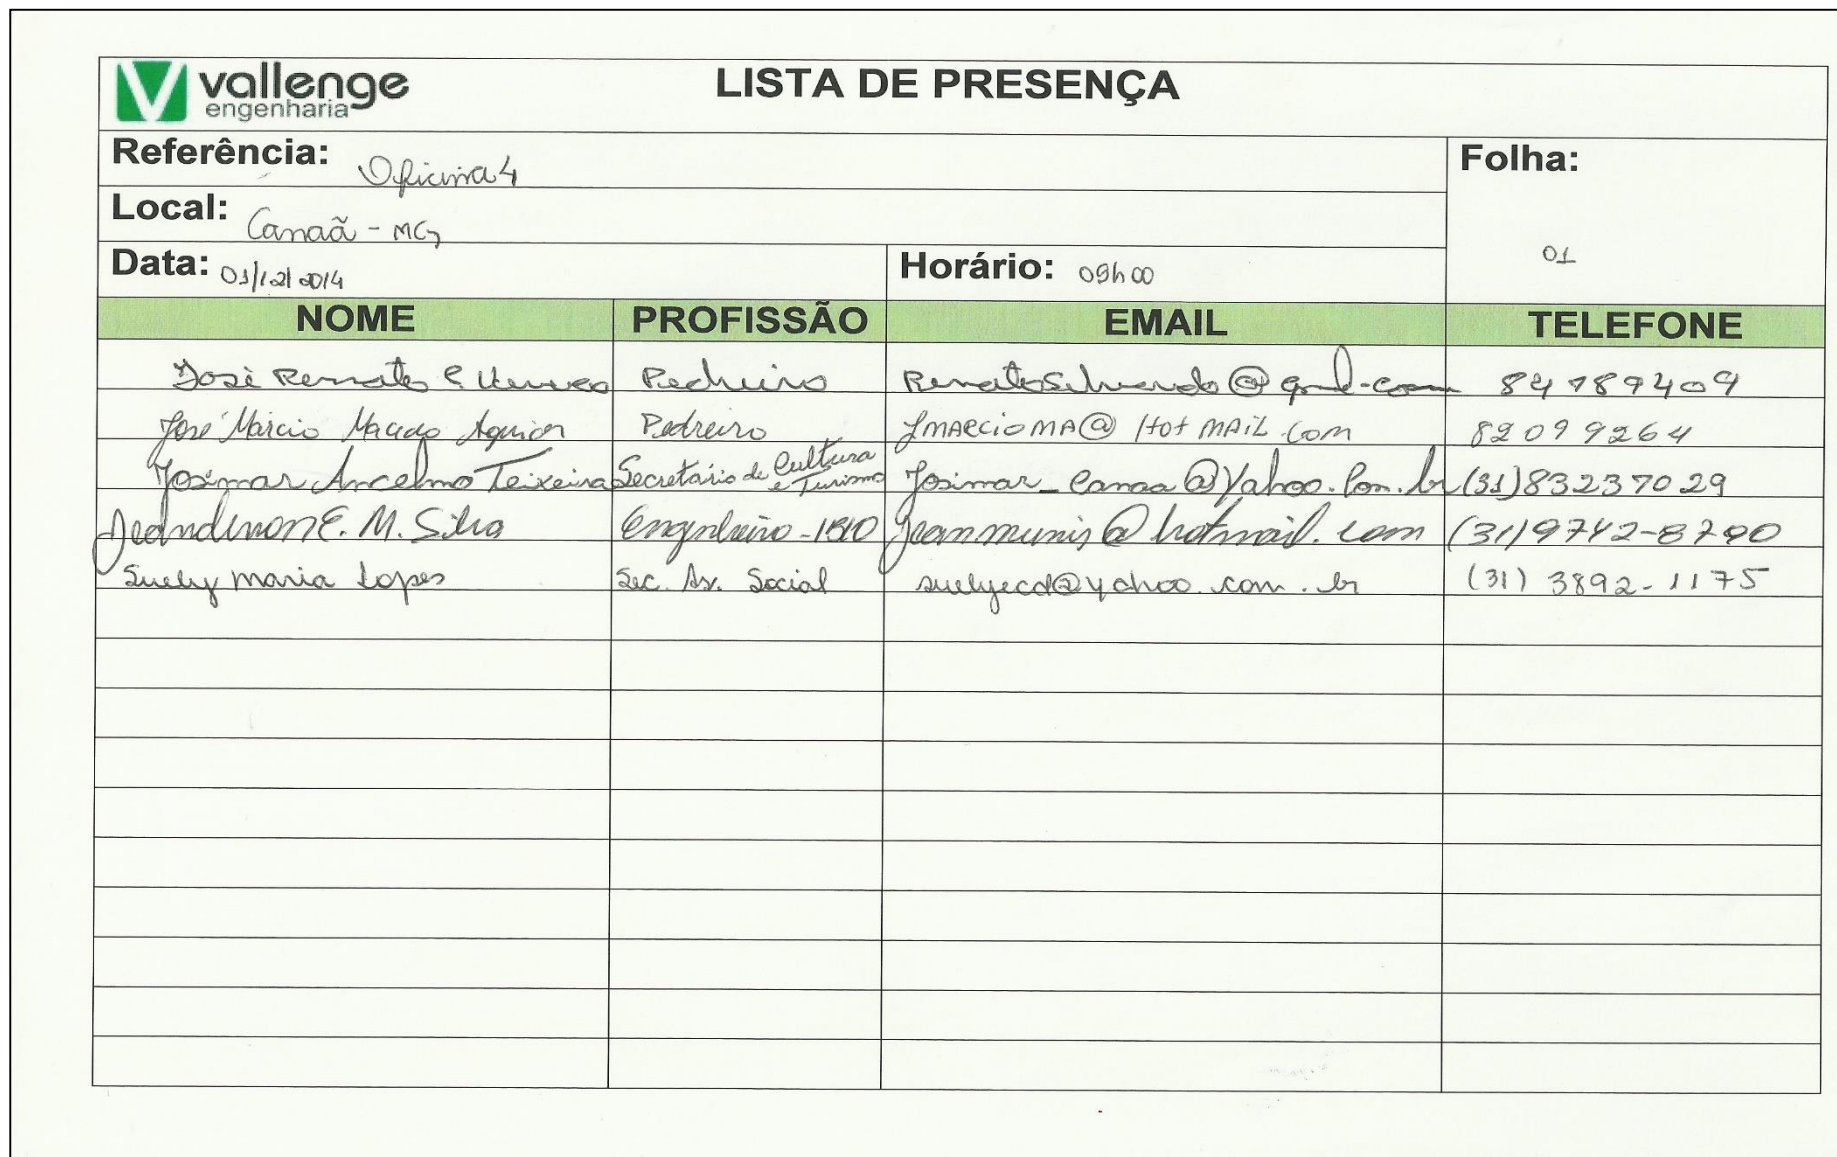 vallenge
engenharia
LISTA DE PRESENÇA
Referência: Oficina 4
Folha: 01
Local: Canaã - MG
Data: 01/12/2014 Horário: 09h00
NOME PROFISSÃO EMAIL TELEFONE
José Renato Pedreiro 84789409
José Márcio Macedo Aguiar Pedreiro JMARCIOMA@HotMAiL.Com 82099264
Josimar Ancelmo Teixeira Secretário de Cultura e Turismo Josimar_Canaa@Yahoo.Com.br (31)83237029
E. M. Silva (31)9742-8790
Suely maria Lopes Sec. As. Social suelyecd@yahoo.com.br (31) 3892-1175